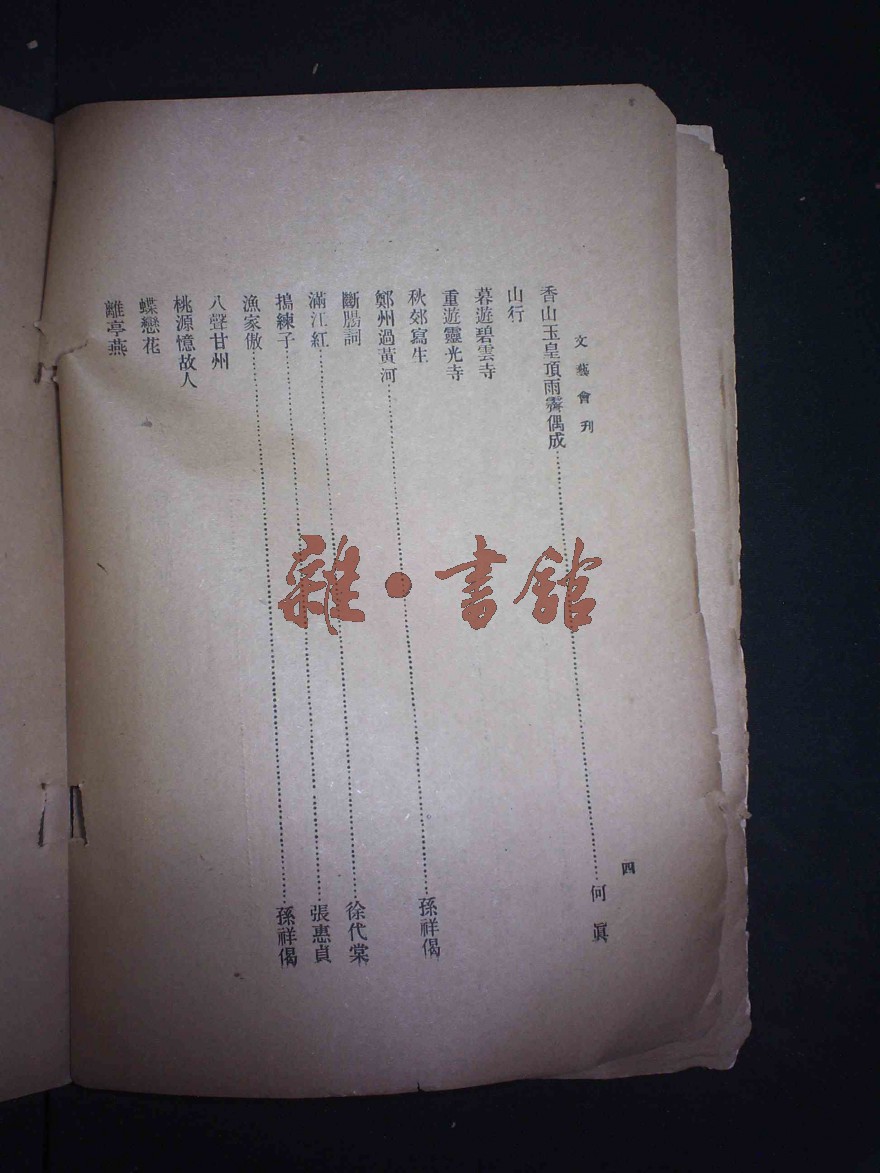 文藝會刊
四
香山玉皇頂雨霽偶成……何真
山行
暮遊碧雲寺
重遊靈光寺
秋郊寫生
鄭州過黃河……孫祥偈
斷腸詞……徐代棠
滿江紅……張惠貞
搗練子……孫祥偈
漁家傲
八聲甘州
桃源憶故人
蝶戀花
離亭燕
雜·書館